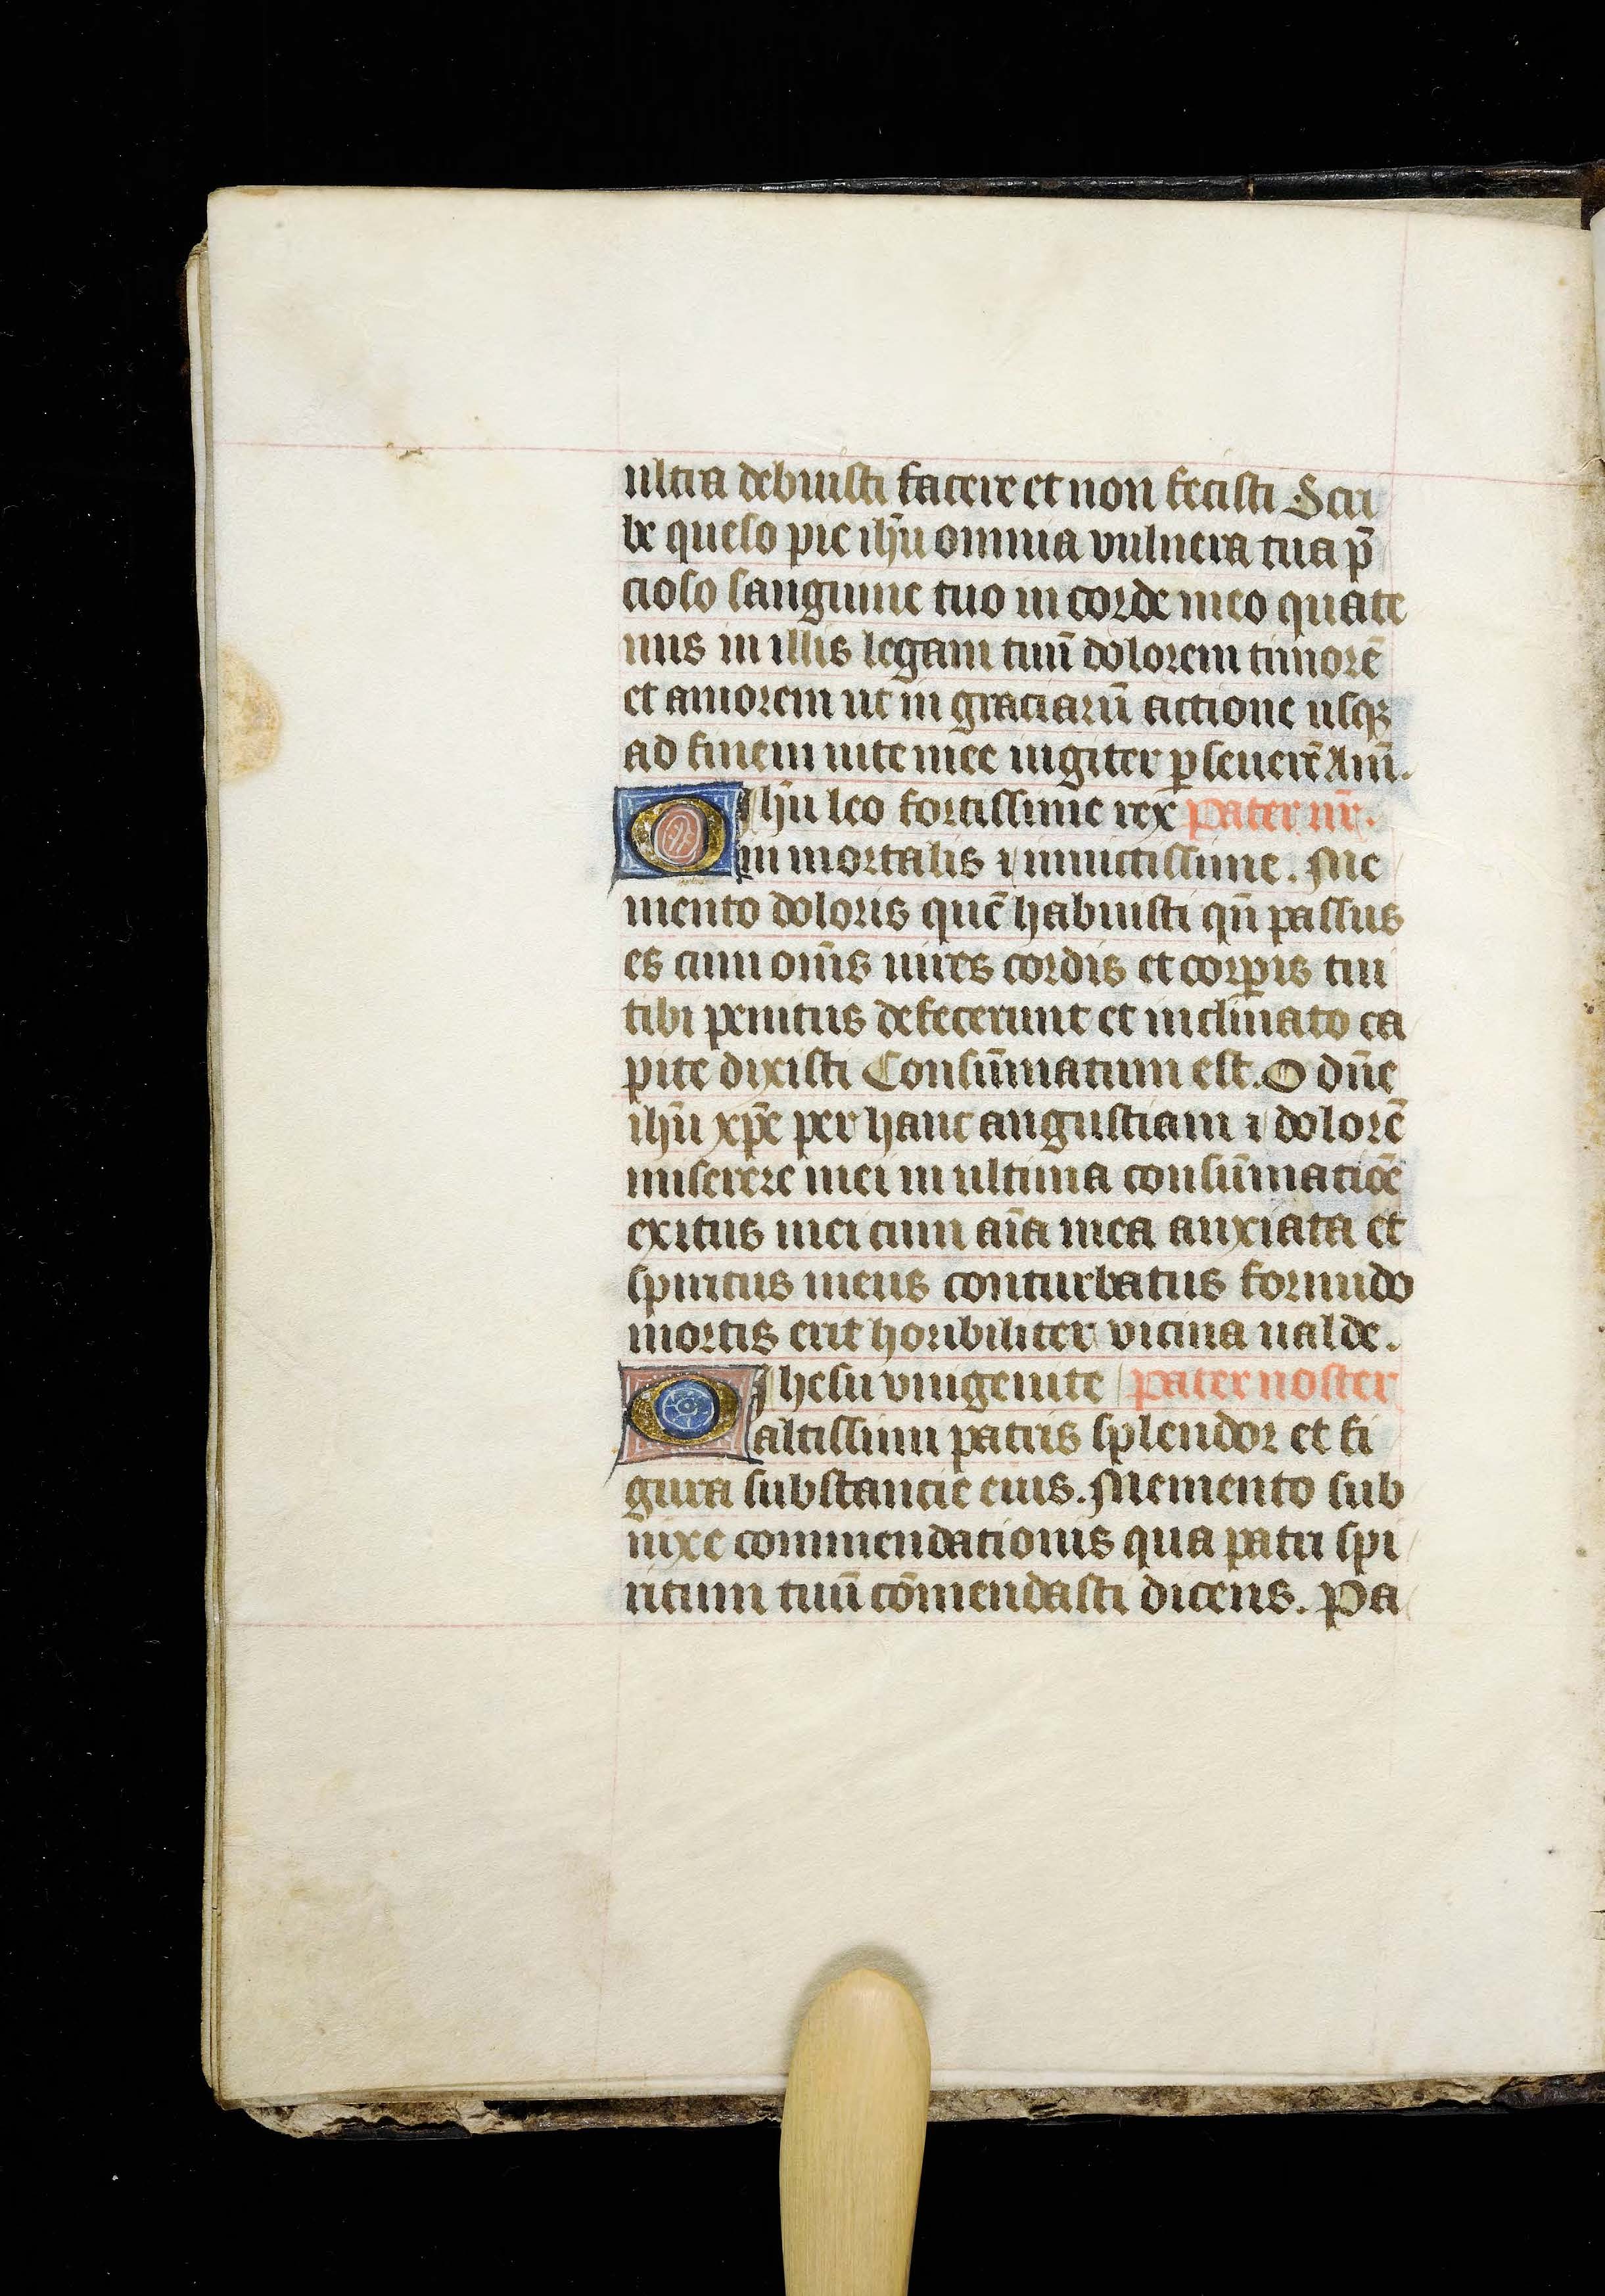 ultra debuisti facere et non fecisti Scri
be queso pie ihū omnia vulnera tua p̄
cioso sanguine tuo in corde meo quate
nus in illis legam tuū dolorem timorē
et amorem ut in graciarū actione usqꝫ
ad finem uite mee iugiter ꝑseuerē Am̄.
O Ihū leo fortissime rex Pater nr̄.
inmortalis ⁊ inuictissime. Me
mento doloris quē habuisti qn̄ passus
es cum om̄s uires cordis et corꝑis tui
tibi penitus defecerunt et inclinato ca
pite dixisti Consūmatum est. O dn̄e
ihū xp̄e per hanc angustiam ⁊ dolorē
miserere mei in ultima consūmaciōe
exitus mei cum aīa mea anxiata et
spiritus meus conturbatus formido
mortis erit horibiliter vicina ualde.
O Ihesu vnigenite Pater noster
altissimi patris splendor et fi
gura substancie eius. Memento sub
nixe commendationis qua patri spi
ritum tuū cōmendasti dicens. Pa